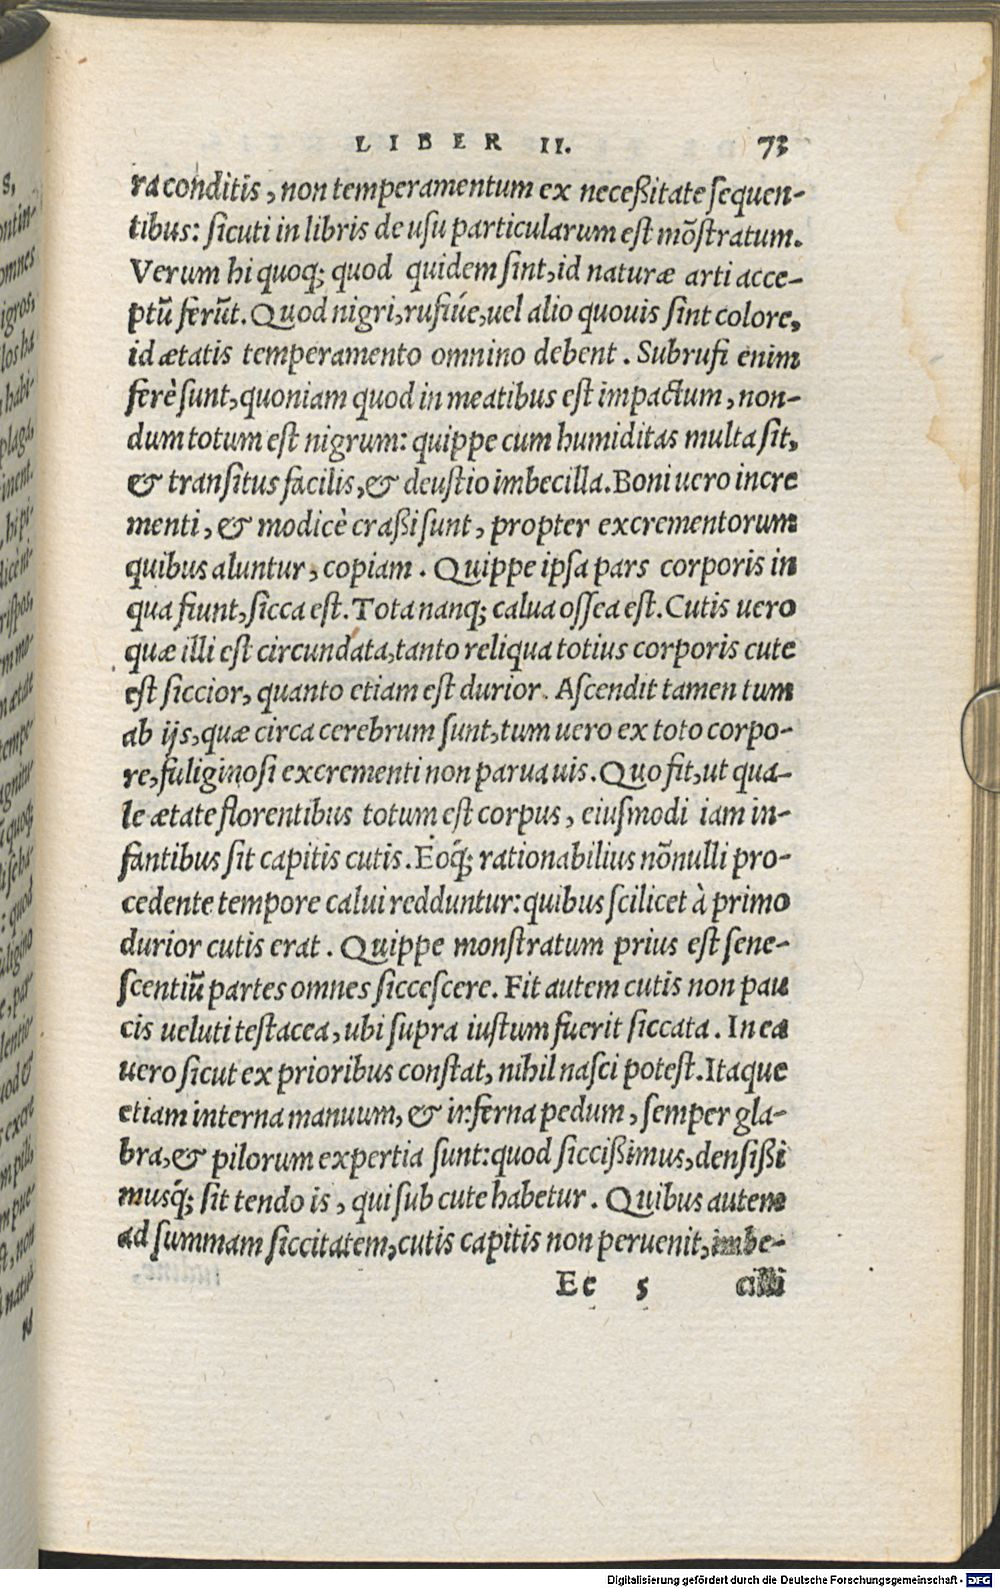 LIBER II. 73
ra conditis, non temperamentum ex neceßitate sequen-
tibus: sicuti in libris de usu particularum est mõstratum.
Verum hi quoq; quod quidem sint, id naturæ arti acce-
ptũ ferũt. Quod nigri, rufiúe, uel alio quouis sint colore,
id ætatis temperamento omnino debent. Subrufi enim
ferè sunt, quoniam quod in meatibus est impactum, non-
dum totum est nigrum: quippe cum humiditas multa sit,
& transitus facilis, & deustio imbecilla. Boni uero incre
menti, & modicè craßi sunt, propter excrementorum
quibus aluntur, copiam. Quippe ipsa pars corporis in
qua fiunt, sicca est. Tota nanq; calua ossea est. Cutis uero
quæ illi est circundata, tanto reliqua totius corporis cute
est siccior, quanto etiam est durior. Ascendit tamen tum
ab ijs, quæ circa cerebrum sunt, tum uero ex toto corpo-
re, fuliginosi excrementi non parua uis. Quo fit, ut qua-
le ætate florentibus totum est corpus, eiusmodi iam in-
fantibus sit capitis cutis. Eoq́; rationabilius nõnulli pro-
cedente tempore calui redduntur: quibus scilicet à primo
durior cutis erat. Quippe monstratum prius est sene-
scentiũ partes omnes siccescere. Fit autem cutis non pau
cis ueluti testacea, ubi supra iustum fuerit siccata. In ea
uero sicut ex prioribus constat, nihil nasci potest. Itaque
etiam interna manuum, & inferna pedum, semper gla-
bra, & pilorum expertia sunt: quod siccißimus, densißi
musq́; sit tendo is, qui sub cute habetur. Quibus autem
ad summam siccitatem, cutis capitis non peruenit, imbe-
Ee 5 cilli
Digitalisierung gefördert durch die Deutsche Forschungsgemeinschaft - DFG